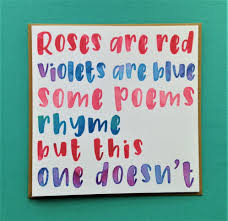 Roses are red
violets are blue
some poems
rhyme
but this
one doesn't